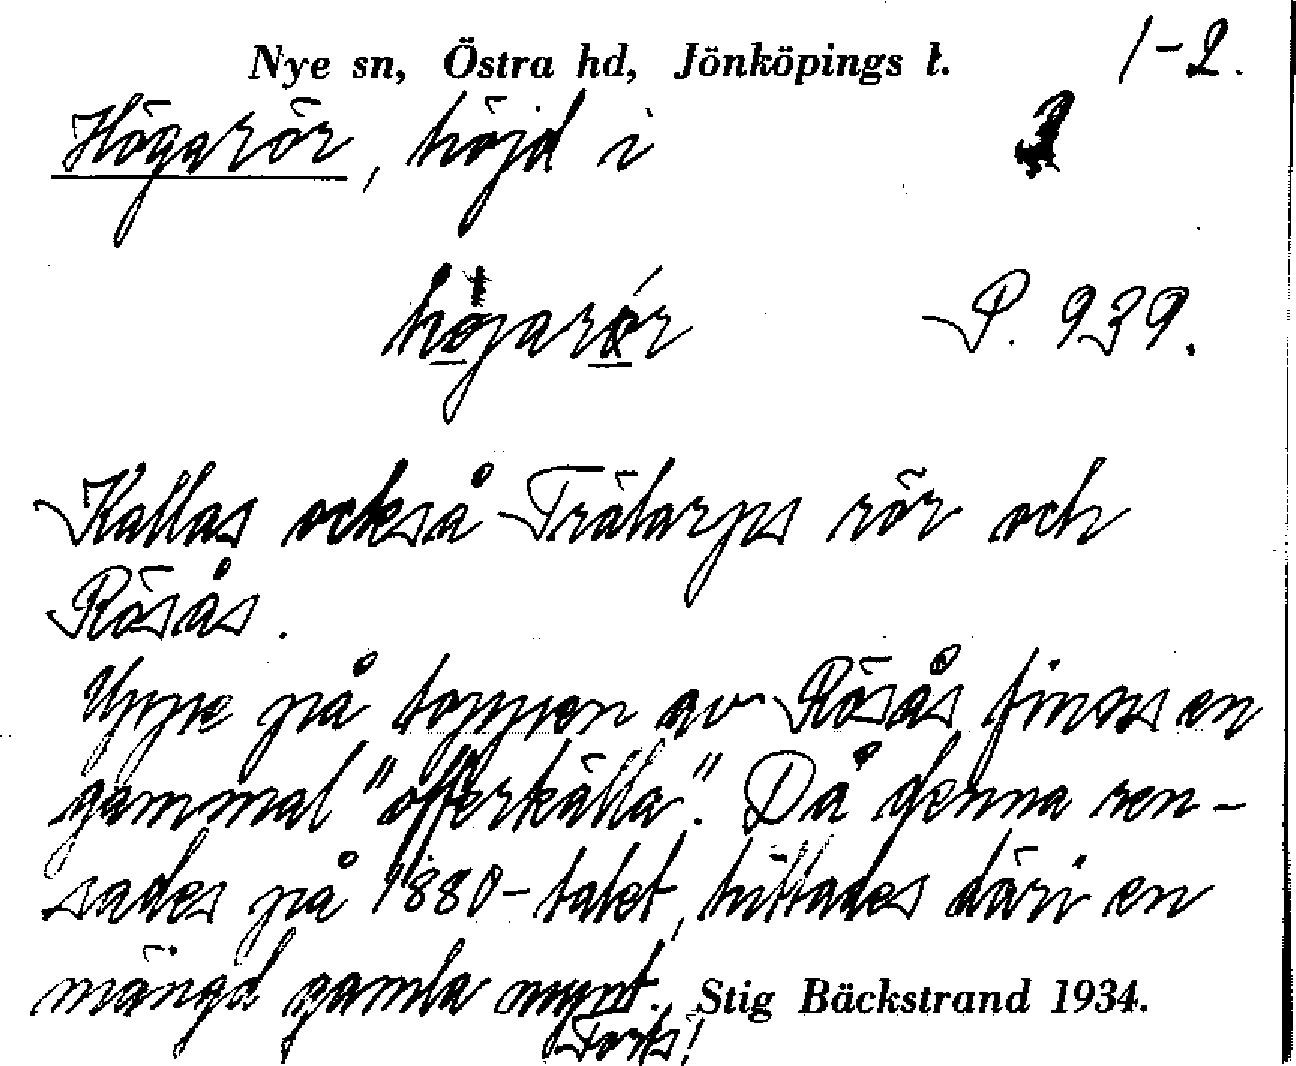 Nye sn, Östra hd, Jönköpings l. 1-2.
Högarör, höjd i
högarör P. 939.
Kallas också Trätarps rör och
Rösås.
Uppe på toppen av Rösås finns en
gammal "offerkälla". Då denna ren-
sades på 1880-talet, hittades däri en
mängd gamla mynt. Stig Bäckstrand 1934.
Forts!